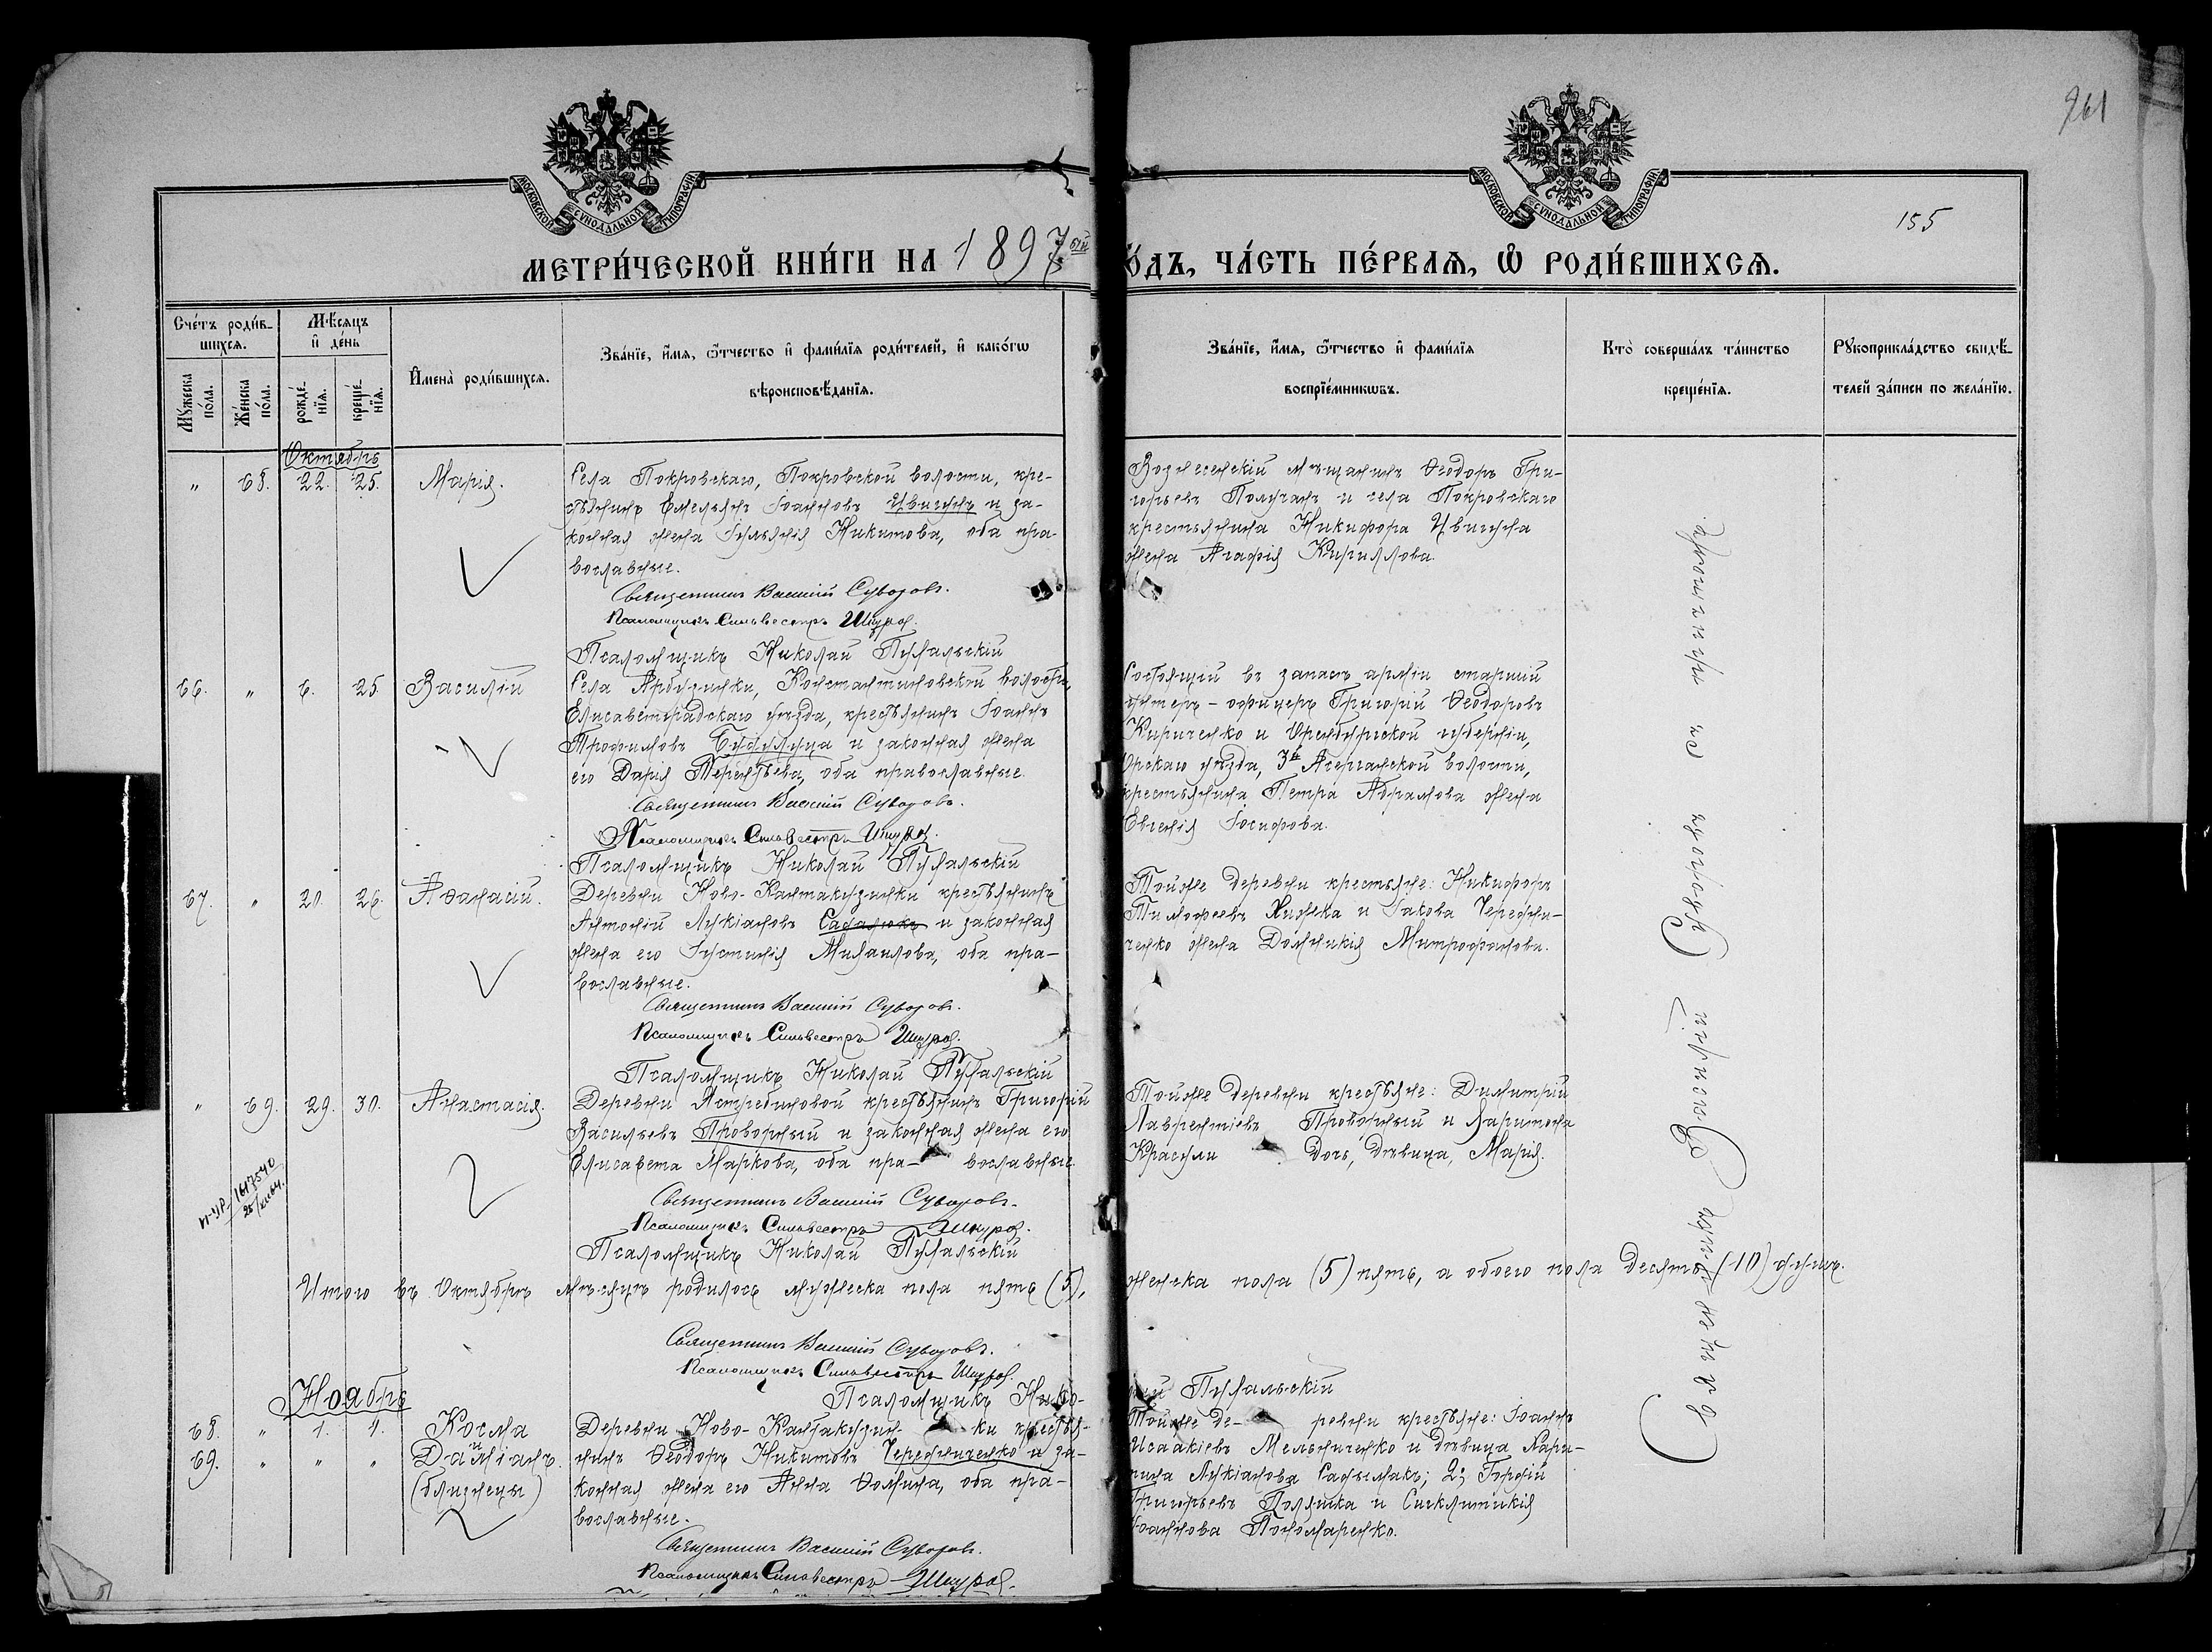 961
МОСКОВСКОЙ СУНОДАЛЬНОЙ ТИПОГРАФІИ
МОСКОВСКОЙ СУНОДАЛЬНОЙ ТИПОГРАФІИ
155
МЕТРИ́ЧЕСКОЙ КНИ́ГИ НА 1897ый
О́ДЪ, ЧА́СТЬ ПЕ́РВАѦ, Ѡ҆ РОДИ́ВШИХСѦ.
Сче́тъ роди́в-
шихсѧ.
Мꙋ́жеска по́ла.
Же́нска по́ла.
Мѣ́сѧцъ
и҆ де́нь
рожде́-
нїѧ.
креще́-
нїѧ.
И҆мена̀ роди́вшихсѧ.
Зва́нїе, и҆́мѧ, ѻ҆́тчество и҆ фами́лїѧ роди́телей, и҆ како́гѡ
вѣроисповѣ́данїѧ.
Зва́нїе, и҆́мѧ, ѻ҆́тчество и҆ фами́лїѧ
воспрїе́мникѡвъ.
Кто̀ соверша́лъ та́инство
креще́нїѧ.
Рꙋкоприкла́дство свидѣ́-
телей за́писи по жела́нїю.
Октябрь
" 68. 22. 25. Марія.
Села Покровскаго, Покровской волости, кре-
стьянинъ Емельянъ Іоанновъ Цвигунъ и за-
конная жена Іуліанія Никитова, оба пра-
вославные.
Священникъ Василій Суворовъ.
Псаломщикъ Сильвестръ
Псаломщикъ Николай
Вознесенскій мѣщанинъ Ѳеодоръ Гри-
горьевъ и села Покровскаго
крестьянина Никифора Цвигуна
жена Агафія Кириллова.
66. " 6. 25. Василій
Села Арбузинки, Константиновской волости,
Елисаветградскаго уѣзда, крестьянинъ Іоаннъ
Трофимовъ и законная жена
его Дарія Терентьева, оба православные.
Священникъ Василій Суворовъ.
Псаломщикъ Сильвестръ
Псаломщикъ Николай
Состоящій въ запасѣ арміи старшій
унтеръ-офицеръ Григорій Ѳеодоровъ
Кириченко и Оренбургской губерніи,
Орскаго уѣзда, 3й волости,
крестьянина Петра Абрамова жена
Евгенія Іосифова.
67. " 20. 26. Аѳанасій.
Деревни Ново-Кантакузинки крестьянинъ
Антоній Лукіановъ и законная
жена его Іустинія Михаилова, оба пра-
вославные.
Священникъ Василій Суворовъ.
Псаломщикъ Сильвестръ
Псаломщикъ Николай
Тойже деревни крестьяне: Никифоръ
Тимофеевъ и Іакова Чередни-
ченко жена Домникія Митрофанова.
" 69. 29. 30. Анастасія.
Деревни Ястребиновой крестьянинъ Григорій
Васильевъ Проворный и законная жена его
Елисавета Маркова, оба пра- вославные.
Священникъ Василій Суворовъ.
Псаломщикъ Сильвестръ
Псаломщикъ Николай
Тойже деревни крестьяне: Димитрій
Лаврентіевъ Проворный и Харитона
дочь, дѣвица, Марія.
Итого въ Октябрѣ мѣсяцѣ родилось мужеска пола пять (5),
женска пола (5) пять, а обоего пола десять (10) душъ.
Священникъ Василій Суворовъ.
Псаломщикъ Сильвестръ
Псаломщикъ Нико-
Ноябрь
68. " 1. 1. Косма
69. " " " Даміанъ.
(близнецы)
Деревни Ново-Кантакузин- ки крестья-
нинъ Ѳеодоръ Никитовъ Чередниченко и за-
конная жена его Анна Ѳомина, оба пра-
вославные.
Священникъ Василій Суворовъ.
Псаломщикъ Сильвестръ
Тойже де- ревни крестьяне: Іоаннъ
Исаакіевъ Мельниченко и дѣвица
Лукіанова 2; Гордій
Григорьевъ и Синклитикія
Іоаннова Пономаренко.
Священникъ Василій Суворовъ съ причтомъ.